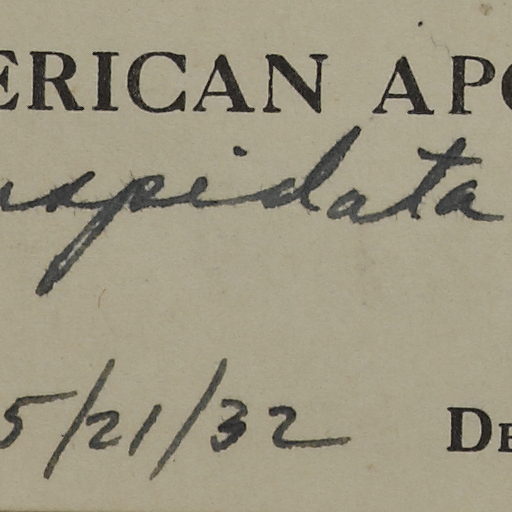 ERICAN APO
uspidata
5/21/32 DE